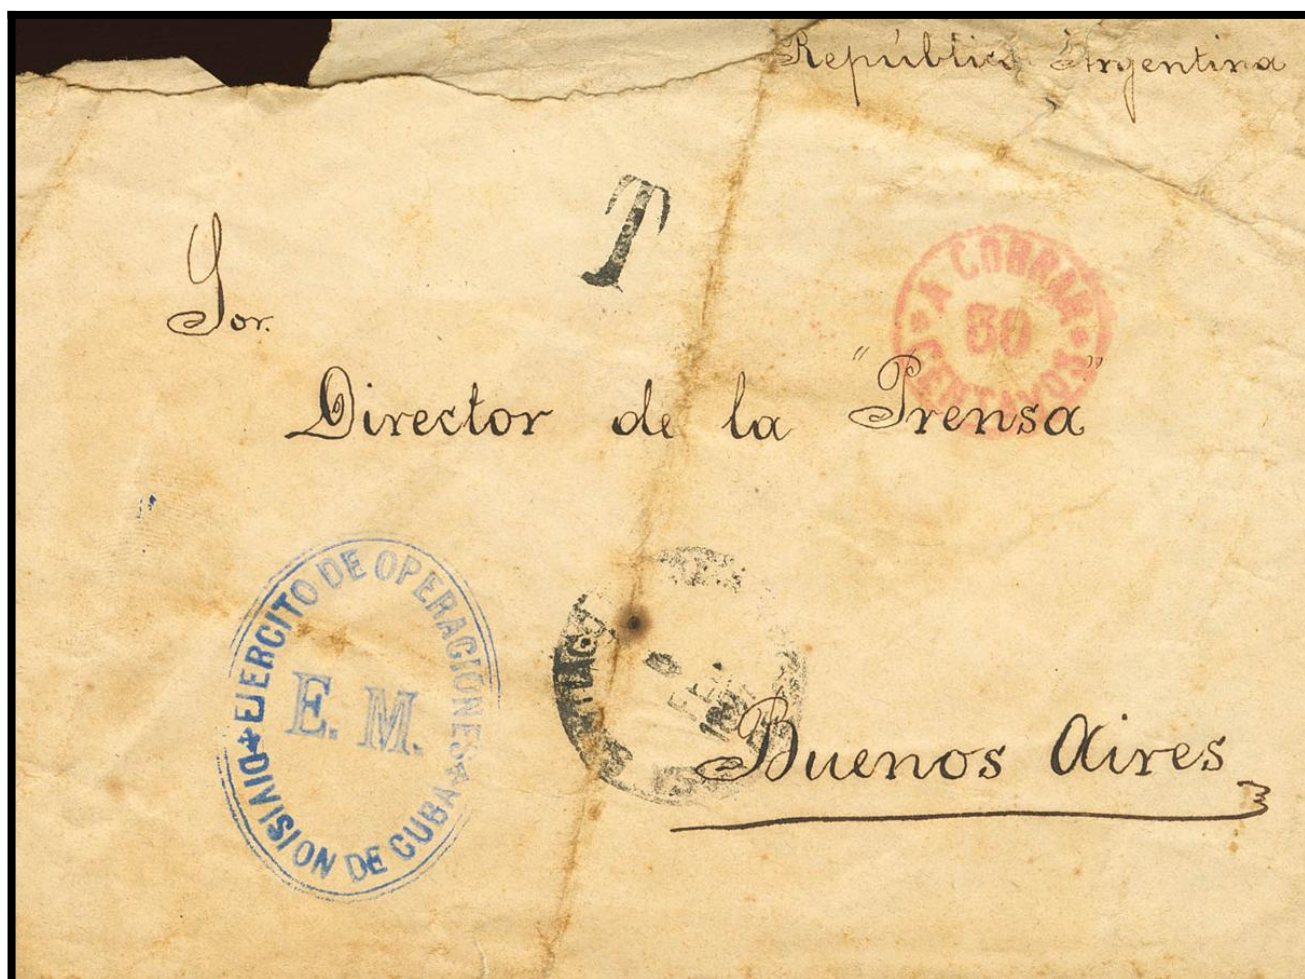 República Argentina
T
A COBRAR
30
CENTAVOS
Sor.
Director de la "Prensa"
EJERCITO DE OPERACIONES
E. M.
DIVISION DE CUBA
Buenos Aires